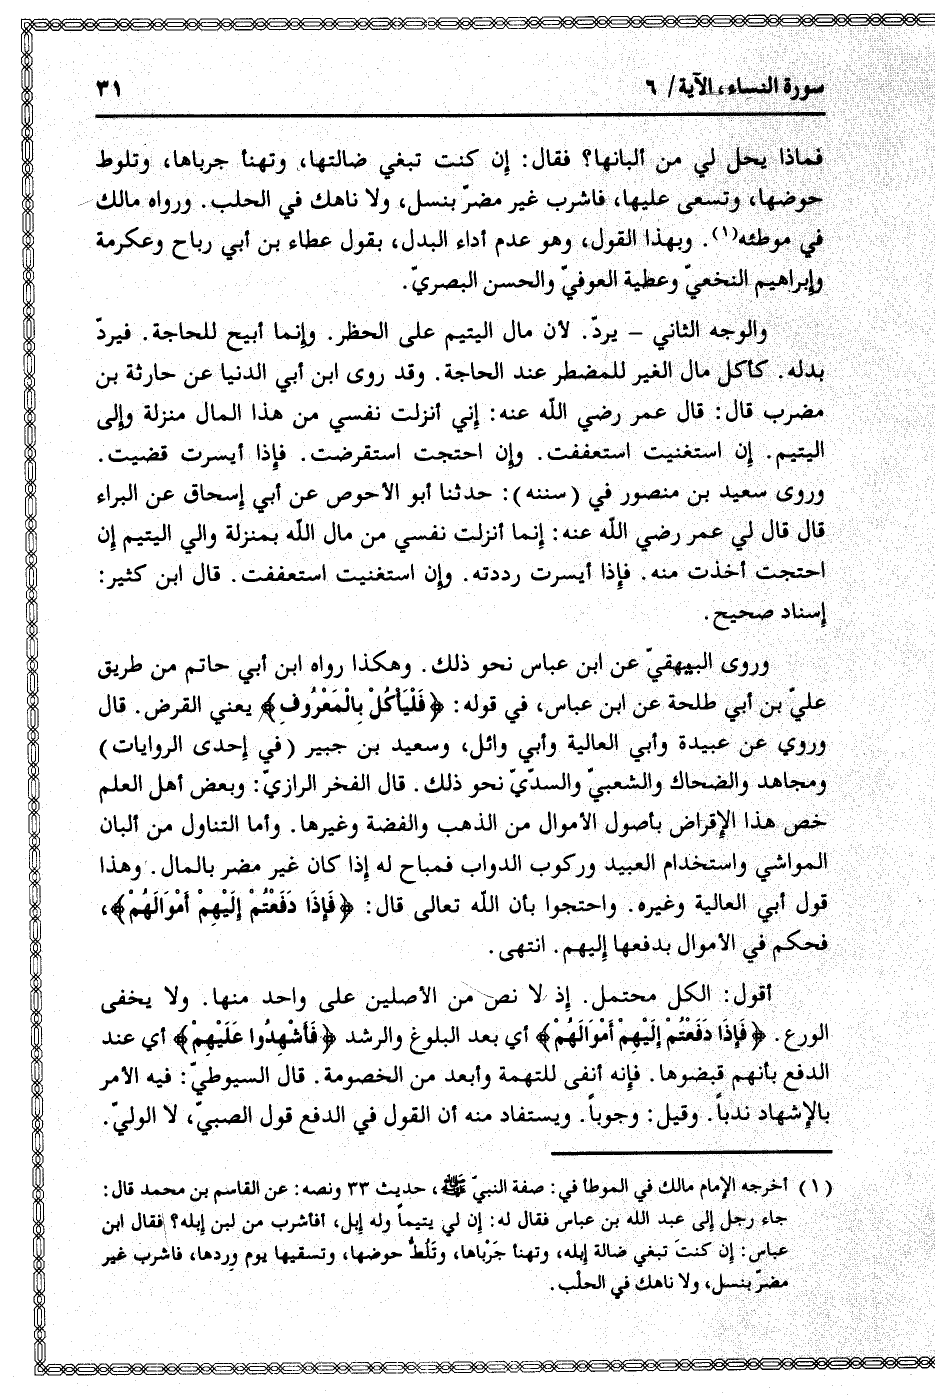 سورة النساء، الآية/ ٦
٣١
فماذا يحل لي من ألبانها؟ فقال: إن كنت تبغي ضالتها، وتهنأ جرباها، وتلوط
حوضها، وتسعى عليها، فاشرب غير مضرّ بنسل، ولا ناهك في الحلب. ورواه مالك
في موطئه(١). وبهذا القول، وهو عدم أداء البدل، بقول عطاء بن أبي رباح وعكرمة
وإبراهيم النخعيّ وعطية العوفيّ والحسن البصريّ.
والوجه الثاني – يردّ. لأن مال اليتيم على الحظر. وإنما أبيح للحاجة. فيردّ
بدله. كأكل مال الغير للمضطر عند الحاجة. وقد روى ابن أبي الدنيا عن حارثة بن
مضرب قال: قال عمر رضي اللّه عنه: إني أنزلت نفسي من هذا المال منزلة وإلى
اليتيم. إن استغنيت استعففت. وإن احتجت استقرضت. فإذا أيسرت قضيت.
وروى سعيد بن منصور في (سننه): حدثنا أبو الأحوص عن أبي إسحاق عن البراء
قال قال لي عمر رضي اللّه عنه: إنما أنزلت نفسي من مال اللّه بمنزلة والي اليتيم إن
احتجت أخذت منه. فإذا أيسرت رددته. وإن استغنيت استعففت. قال ابن كثير:
إسناد صحيح.
وروى البيهقيّ عن ابن عباس نحو ذلك. وهكذا رواه ابن أبي حاتم من طريق
عليّ بن أبي طلحة عن ابن عباس، في قوله: ﴿فَلْيَأْكُلْ بِالْمَعْرُوفِ﴾ يعني القرض. قال
وروي عن عبيدة وأبي العالية وأبي وائل، وسعيد بن جبير (في إحدى الروايات)
ومجاهد والضحاك والشعبيّ والسدّيّ نحو ذلك. قال الفخر الرازيّ: وبعض أهل العلم
خص هذا الإقراض بأصول الأموال من الذهب والفضة وغيرها. وأما التناول من ألبان
المواشي واستخدام العبيد وركوب الدواب فمباح له إذا كان غير مضر بالمال. وهذا
قول أبي العالية وغيره. واحتجوا بأن اللّه تعالى قال: ﴿فَإِذَا دَفَعْتُمْ إِلَيْهِمْ أَمْوَالَهُمْ﴾،
فحكم في الأموال بدفعها إليهم. انتهى.
أقول: الكل محتمل. إذ لا نص من الأصلين على واحد منها. ولا يخفى
الورع. ﴿فَإِذَا دَفَعْتُمْ إِلَيْهِمْ أَمْوَالَهُمْ﴾ أي بعد البلوغ والرشد ﴿فَأَشْهِدُوا عَلَيْهِمْ﴾ أي عند
الدفع بأنهم قبضوها. فإنه أنفى للتهمة وأبعد من الخصومة. قال السيوطيّ: فيه الأمر
بالإشهاد ندباً. وقيل: وجوباً. ويستفاد منه أن القول في الدفع قول الصبيّ، لا الوليّ.
(١) أخرجه الإمام مالك في الموطأ في: صفة النبيّ ﷺ، حديث ٣٣ ونصه: عن القاسم بن محمد قال:
جاء رجل إلى عبد الله بن عباس فقال له: إن لي يتيماً وله إبل، أفأشرب من لبن إبله؟ فقال ابن
عباس: إن كنتَ تبغي ضالة إبله، وتهنأ جَرْباها، وتَلُطُّ حوضها، وتسقيها يوم وِردها، فاشرب غير
مضرّ بنسل، ولا ناهك في الحلْب.